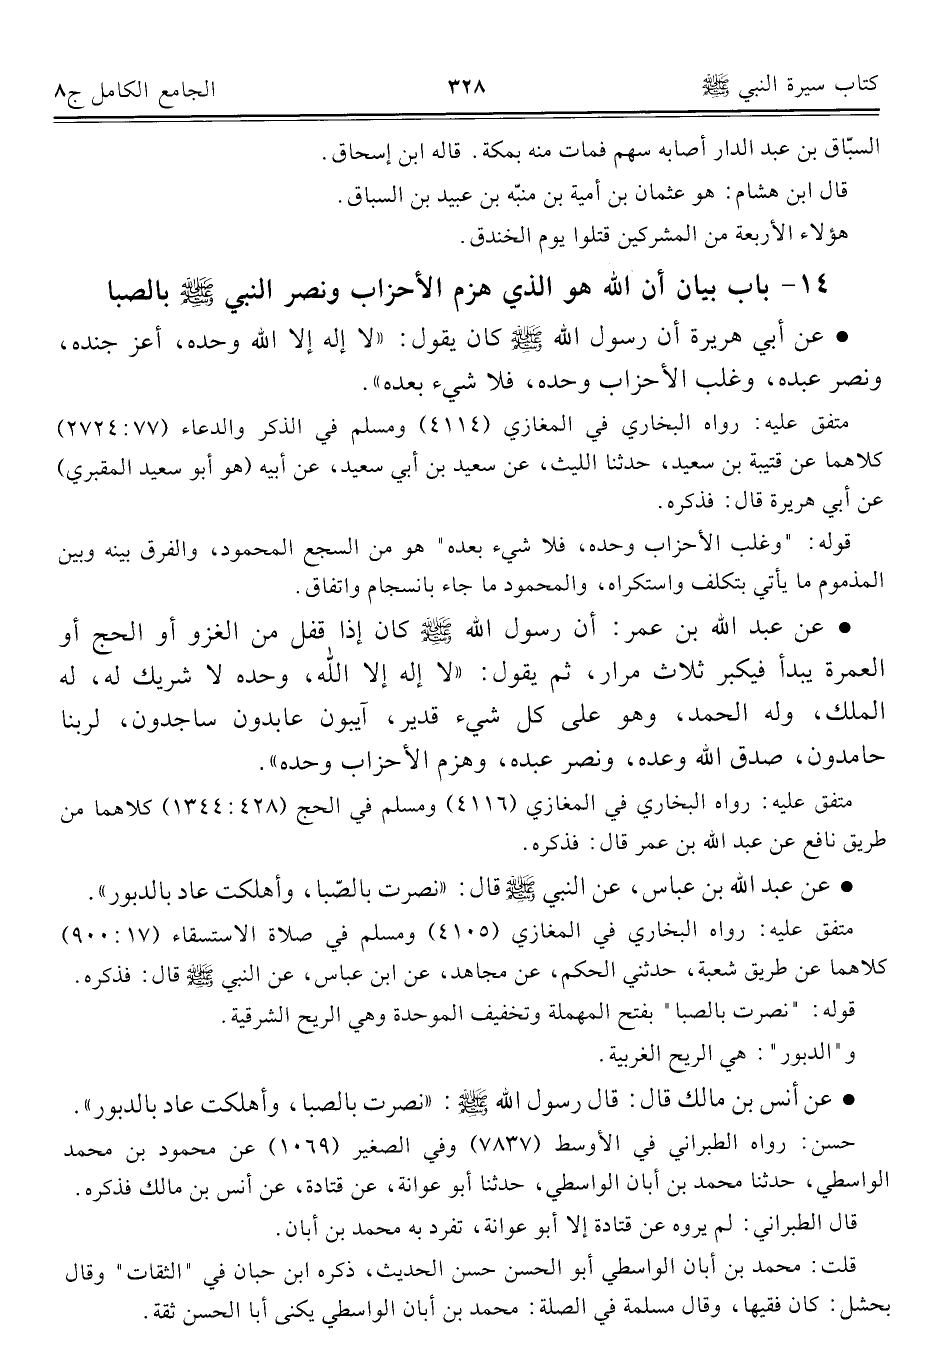 كتاب سيرة النبي ﷺ ٣٢٨ الجامع الكامل ج٨
السبّاق بن عبد الدار أصابه سهم فمات منه بمكة. قاله ابن إسحاق.
قال ابن هشام: هو عثمان بن أمية بن منبّه بن عبيد بن السباق.
هؤلاء الأربعة من المشركين قتلوا يوم الخندق.
١٤- باب بيان أن الله هو الذي هزم الأحزاب ونصر النبي ﷺ بالصبا
• عن أبي هريرة أن رسول الله ﷺ كان يقول: «لا إله إلا الله وحده، أعز جنده،
ونصر عبده، وغلب الأحزاب وحده، فلا شيء بعده».
متفق عليه: رواه البخاري في المغازي (٤١١٤) ومسلم في الذكر والدعاء (٢٧٢٤:٧٧)
كلاهما عن قتيبة بن سعيد، حدثنا الليث، عن سعيد بن أبي سعيد، عن أبيه (هو أبو سعيد المقبري)
عن أبي هريرة قال: فذكره.
قوله: "وغلب الأحزاب وحده، فلا شيء بعده" هو من السجع المحمود، والفرق بينه وبين
المذموم ما يأتي بتكلف واستكراه، والمحمود ما جاء بانسجام واتفاق.
• عن عبد الله بن عمر: أن رسول الله ﷺ كان إذا قفل من الغزو أو الحج أو
العمرة يبدأ فيكبر ثلاث مرار، ثم يقول: «لا إله إلا الله، وحده لا شريك له، له
الملك، وله الحمد، وهو على كل شيء قدير، آيبون عابدون ساجدون، لربنا
حامدون، صدق الله وعده، ونصر عبده، وهزم الأحزاب وحده».
متفق عليه: رواه البخاري في المغازي (٤١١٦) ومسلم في الحج (١٣٤٤:٤٢٨) كلاهما من
طريق نافع عن عبد الله بن عمر قال: فذكره.
• عن عبد الله بن عباس، عن النبي ﷺ قال: «نصرت بالصّبا، وأهلكت عاد بالدبور».
متفق عليه: رواه البخاري في المغازي (٤١٠٥) ومسلم في صلاة الاستسقاء (٩٠٠:١٧)
كلاهما عن طريق شعبة، حدثني الحكم، عن مجاهد، عن ابن عباس، عن النبي ﷺ قال: فذكره.
قوله: "نصرت بالصبا" بفتح المهملة وتخفيف الموحدة وهي الريح الشرقية.
و"الدبور": هي الريح الغربية.
• عن أنس بن مالك قال: قال رسول الله ﷺ: «نصرت بالصبا، وأهلكت عاد بالدبور».
حسن: رواه الطبراني في الأوسط (٧٨٣٧) وفي الصغير (١٠٦٩) عن محمود بن محمد
الواسطي، حدثنا محمد بن أبان الواسطي، حدثنا أبو عوانة، عن قتادة، عن أنس بن مالك فذكره.
قال الطبراني: لم يروه عن قتادة إلا أبو عوانة، تفرد به محمد بن أبان.
قلت: محمد بن أبان الواسطي أبو الحسن حسن الحديث، ذكره ابن حبان في "الثقات" وقال
بحشل: كان فقيها، وقال مسلمة في الصلة: محمد بن أبان الواسطي يكنى أبا الحسن ثقة.